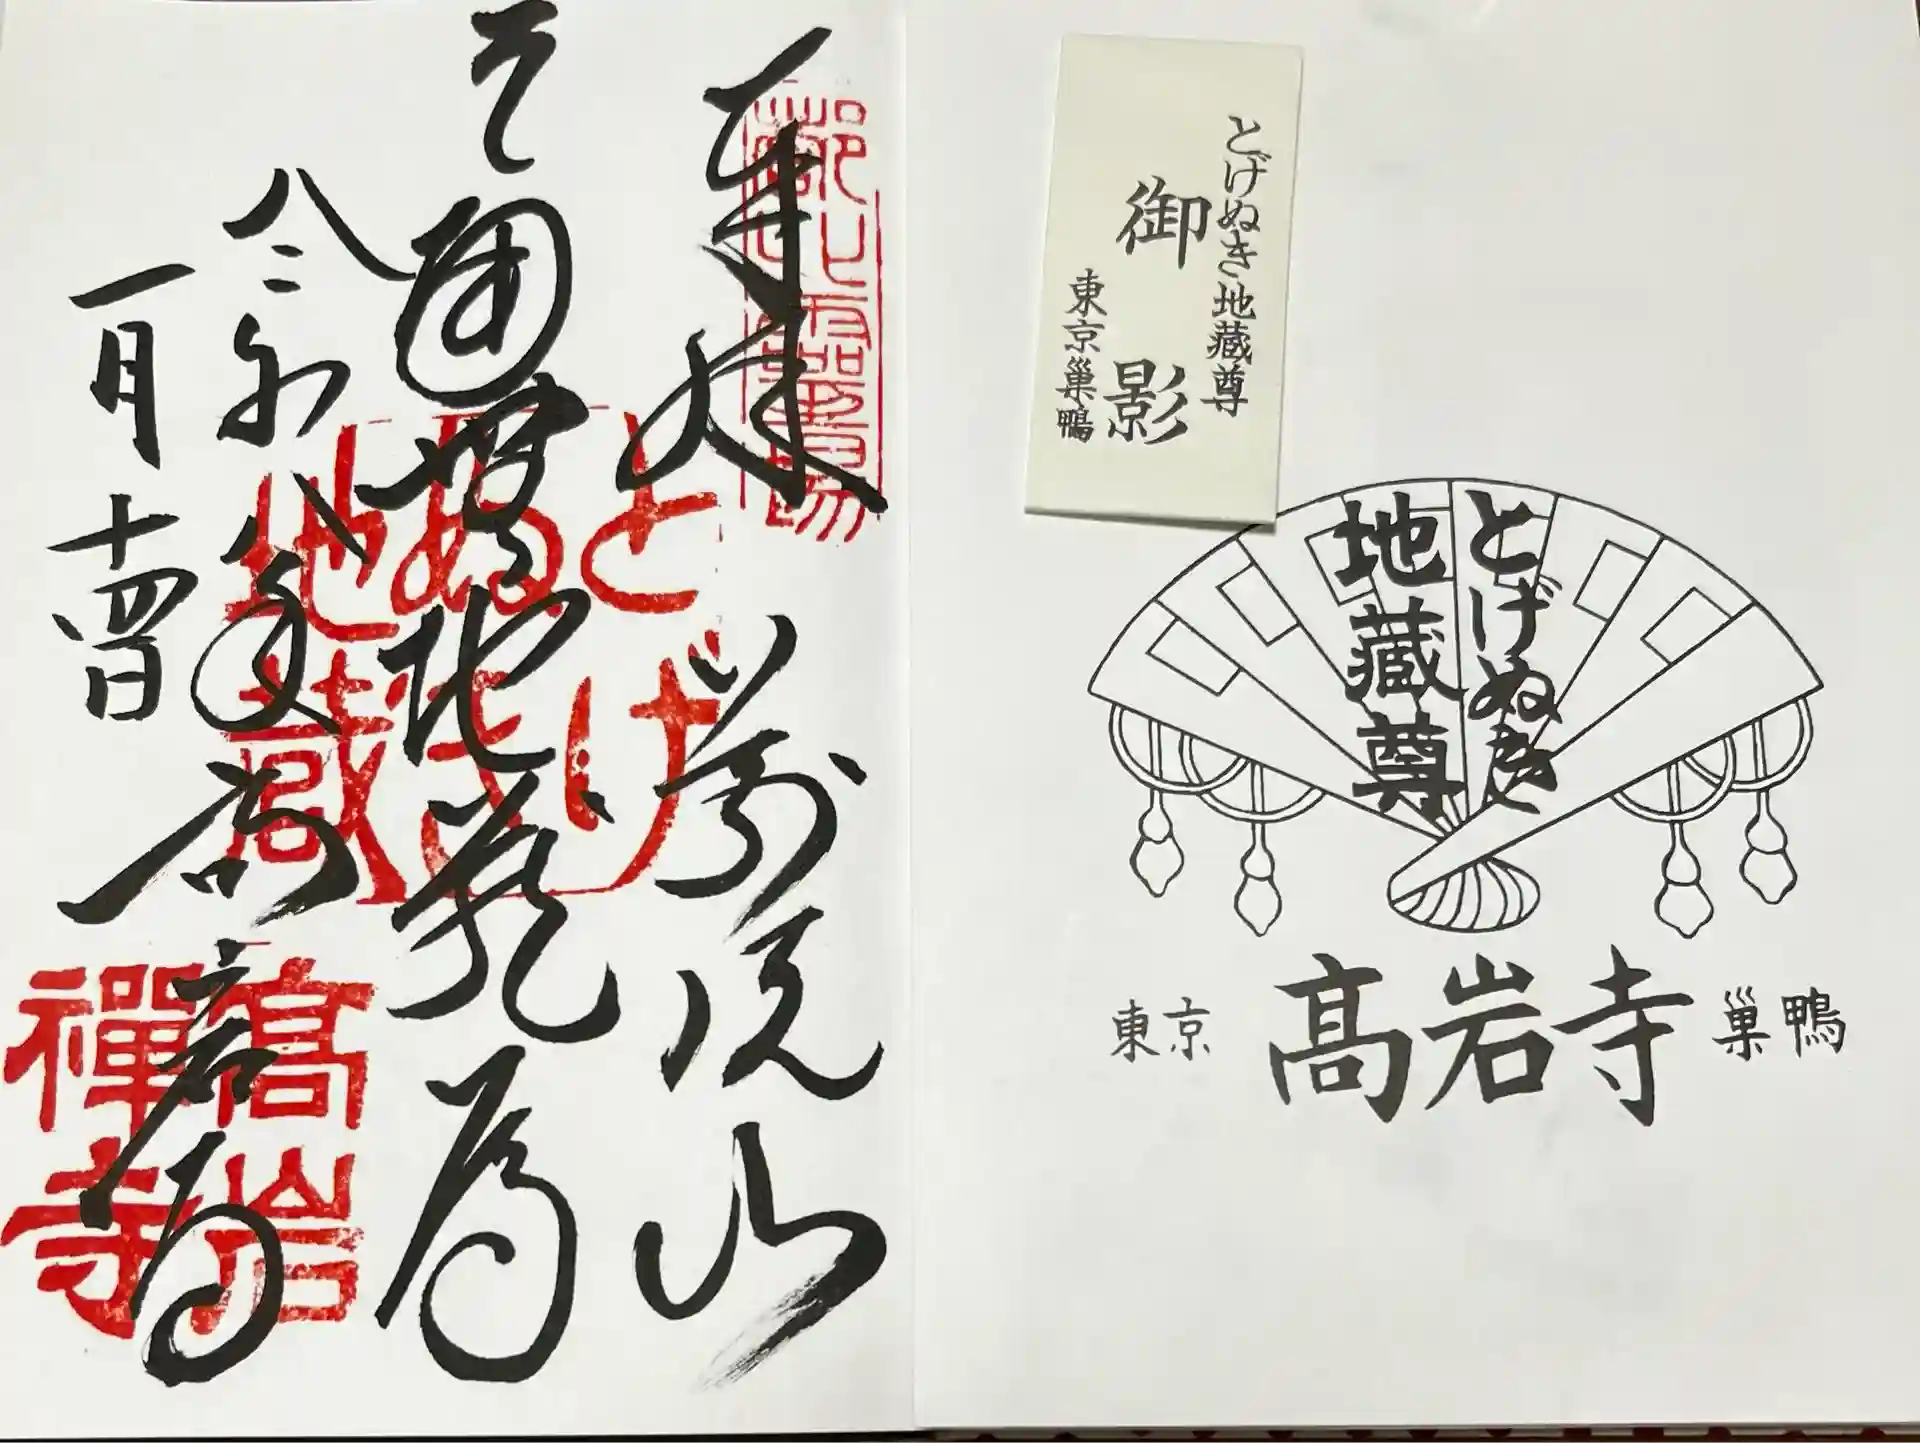 とげぬき地蔵尊
御影
東京巣鴨
とげぬき
地蔵尊
東京 髙岩寺 巣鴨
奉拝
萬頂山
地蔵尊
令和八年
髙岩寺
一月十四日
とげ
ぬき
地蔵
髙岩
禪寺